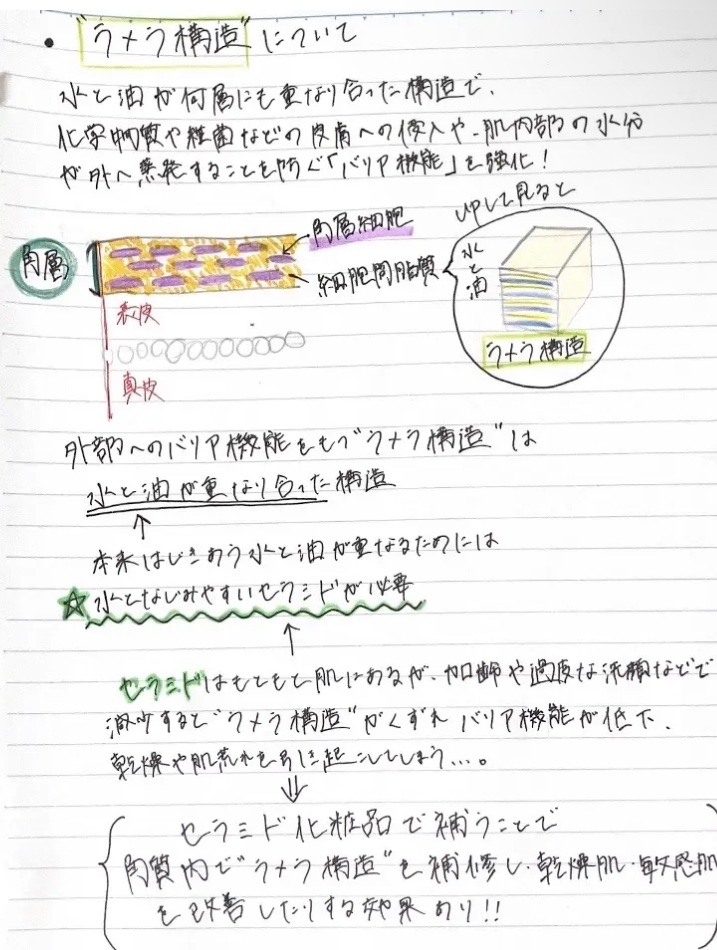 • "ラメラ構造"について
水と油が何層にも重なり合った構造で、
化学物質や雑菌などの皮膚への侵入や、肌内部の水分
が外へ蒸発することを防ぐ「バリア機能」を強化!
UPして見ると
角層
角層細胞
細胞間脂質
水と油
ラメラ構造
表皮
真皮
外部へのバリア機能をもつ"ラメラ構造"は
水と油が重なり合った構造
↑
本来はじきあう水と油が重なるためには
☆水となじみやすいセラミドが必要
↑
セラミドはもともと肌にあるが、加齢や過度な洗顔などで
減少すると"ラメラ構造"がくずれ バリア機能が低下、
乾燥や肌荒れを引き起こしてしまう…。
⇓
セラミド化粧品で補うことで
角質内で"ラメラ構造"を補修し、乾燥肌・敏感肌
を改善したりする効果あり!!